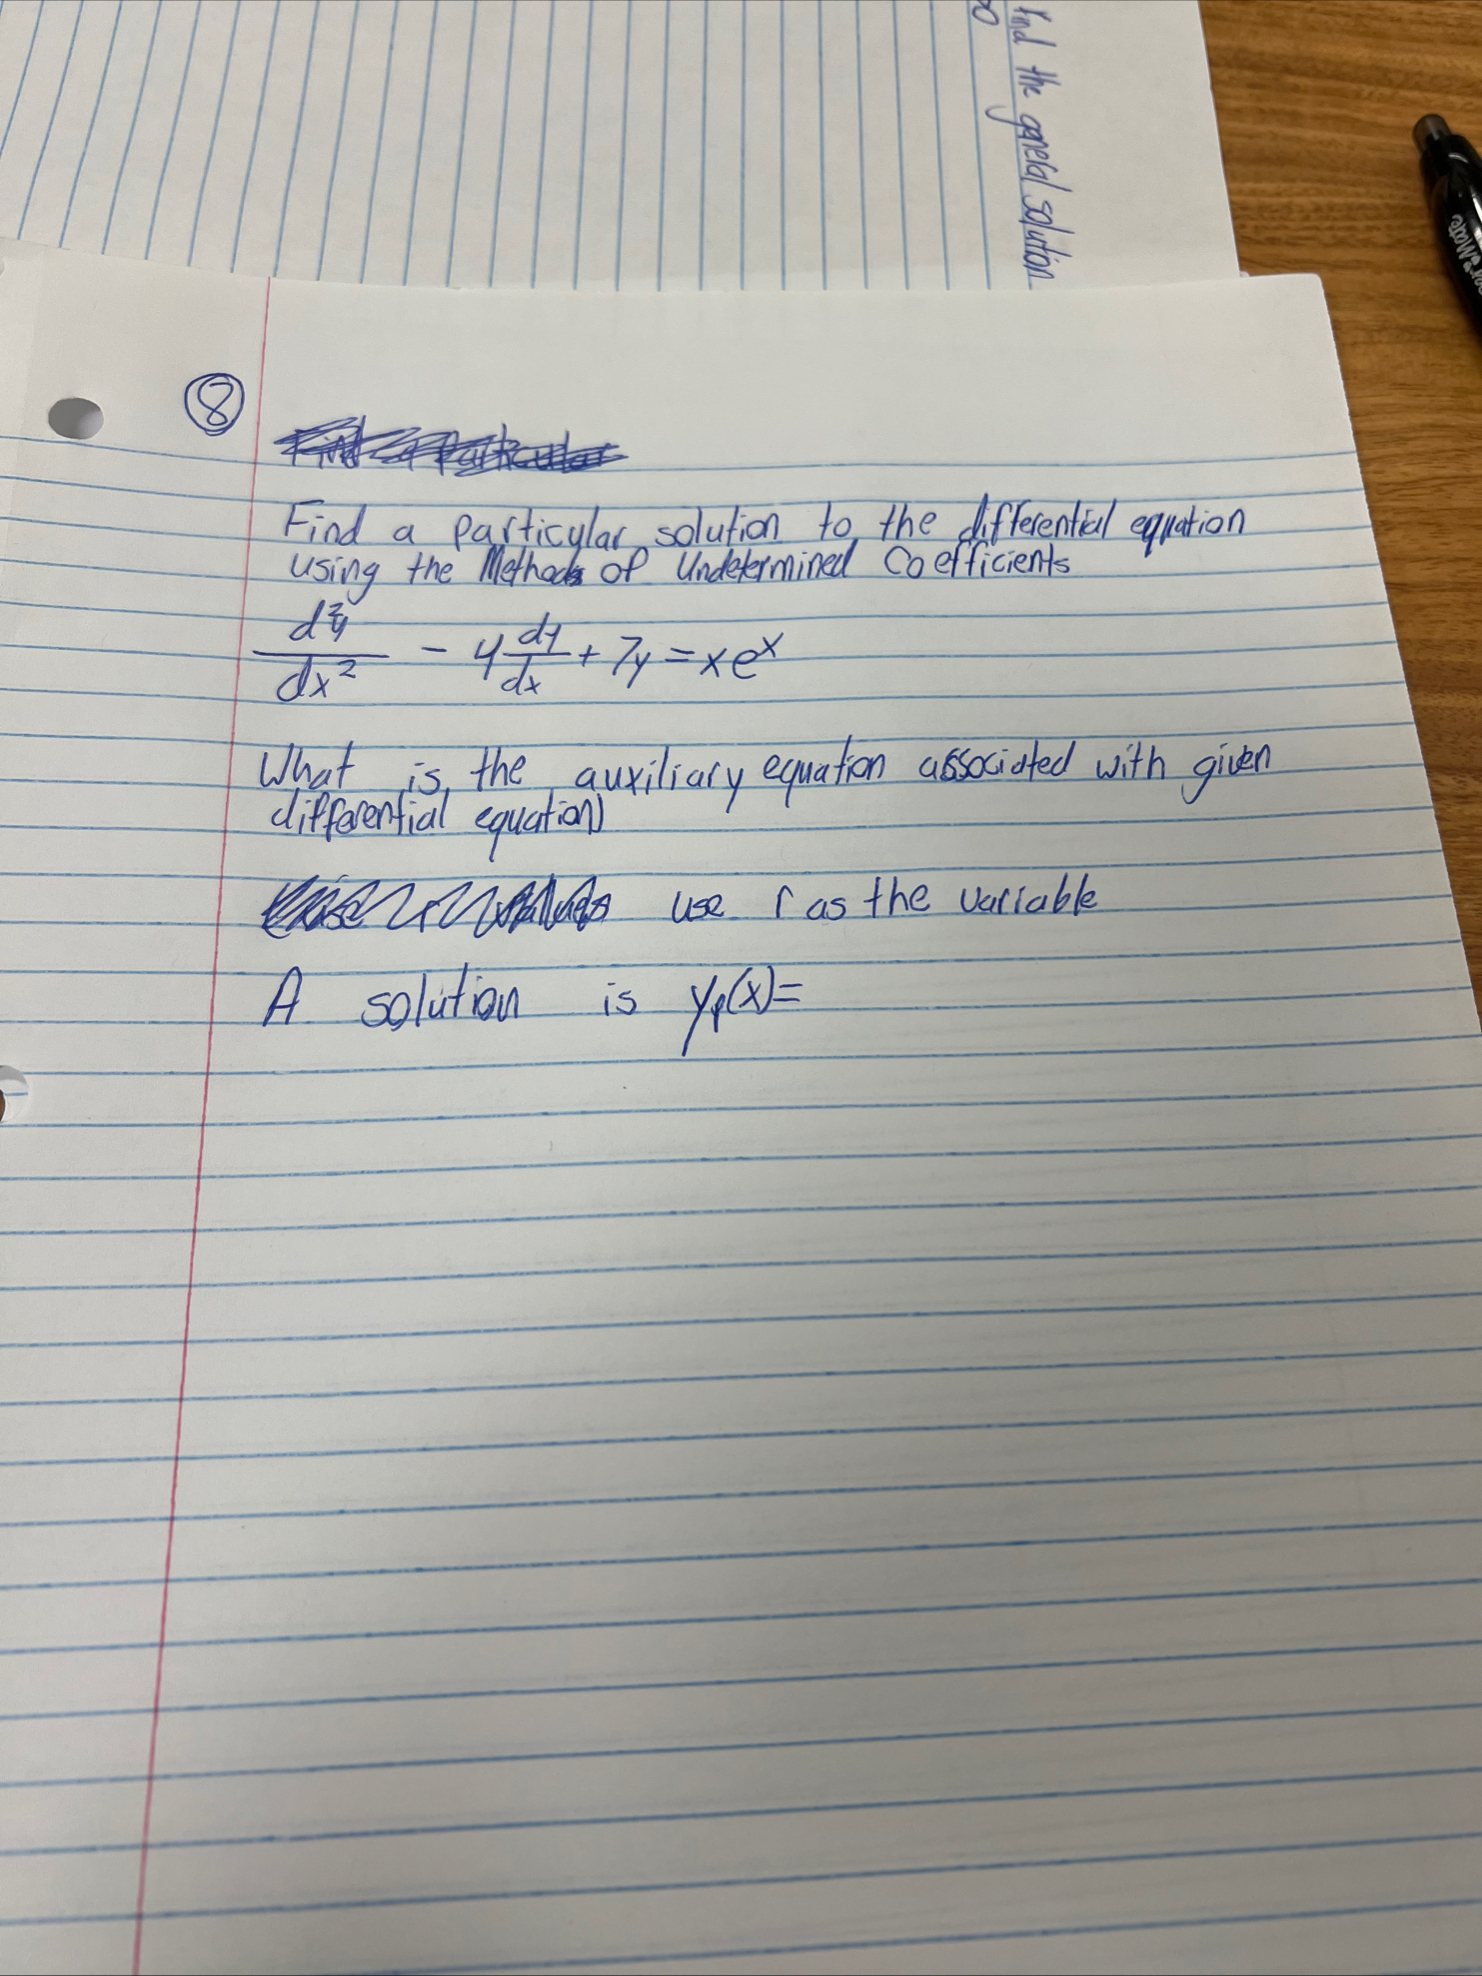 find the general solution
8
Find a Particular
Find a particular solution to the differential equation
using the Method of Undetermined Coefficients
d²y/dx² - 4 dy/dx + 7y = xeˣ
What is the auxiliary equation associated with given
differential equation)
use r as the variable
A solution is yₚ(x)=